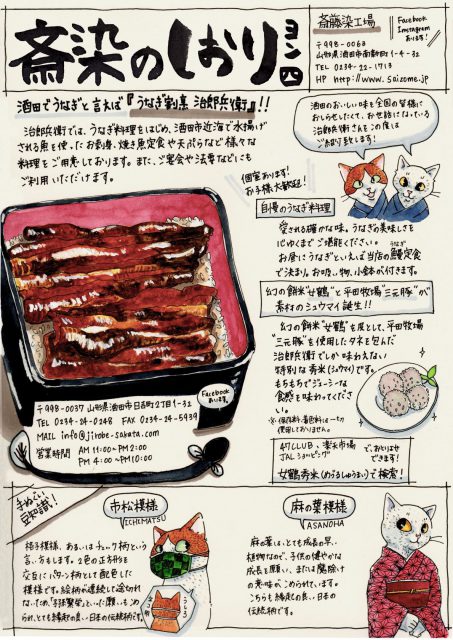 斎染のしおり
ヨン四
斎藤染工場
Facebook
Instagram
あります!
〒998-0063
TEL 0234-22-1713
HP http://www.saizome.jp
酒田でうなぎと言えば『うなぎ割烹 治郎兵衛』!!
治郎兵衛では、うなぎ料理をはじめ、酒田市近海で水揚げ
される魚を使ったお刺身、焼き魚定食や天ぷらなど様々な
料理をご用意しております。また、ご宴会や法事などにも
ご利用いただけます。
酒田のおいしい味を全国の皆様に
治郎兵衛さんをこの度は
個室あります!
お子様大歓迎!
自慢のうなぎ料理
愛される確かな味。うなぎの美味しさを
心ゆくまでご堪能ください。
お昼にうなぎといえば当店の鰻定食
うなぎ
で決まり。お吸い物、小鉢が付きます。
幻の餅米"女鶴"と平田牧場"三元豚"が
素材のシュウマイ誕生!!
幻の餅米"女鶴"を皮として、平田牧場
"三元豚"を使用したタネを包んだ
治郎兵衛でしか味わえない
特別な寿米(シュウマイ)です。
もちもちでジューシーな
食感を味わってくださ
い。
※保存料・着色料は一切
使用しておりません。
〒998-0037 山形県酒田市日吉町2丁目1-32
TEL 0234-24-0248 FAX 0234-24-5939
MAIL info@jirobe-sakata.com
営業時間 AM 11:00~PM 2:00
PM 4:00~PM 10:00
Facebook
あります。
47CLUB、楽天市場
JALショッピング
で、お取りよせ
できます!
女鶴寿米(めづるしゅうまい)で検索!
手ぬぐい
豆知識!
市松模様
ICHIMATSU
格子模様、あるいはチェック柄という
言い方もします。2色の正方形を
交互にパターン柄として配色した
模様です。絵柄が連続して途切れ
ないため、「子孫繁栄」といった願いも込め
られ、とても縁起の良い日本の伝統柄です。
麻の葉模様
ASANOHA
麻の葉は、とても成長の早い
植物なので、子供の健やかな
成長を願い、または魔除け
の意味が込められています。
こちらも縁起の良い日本の
伝統柄です。